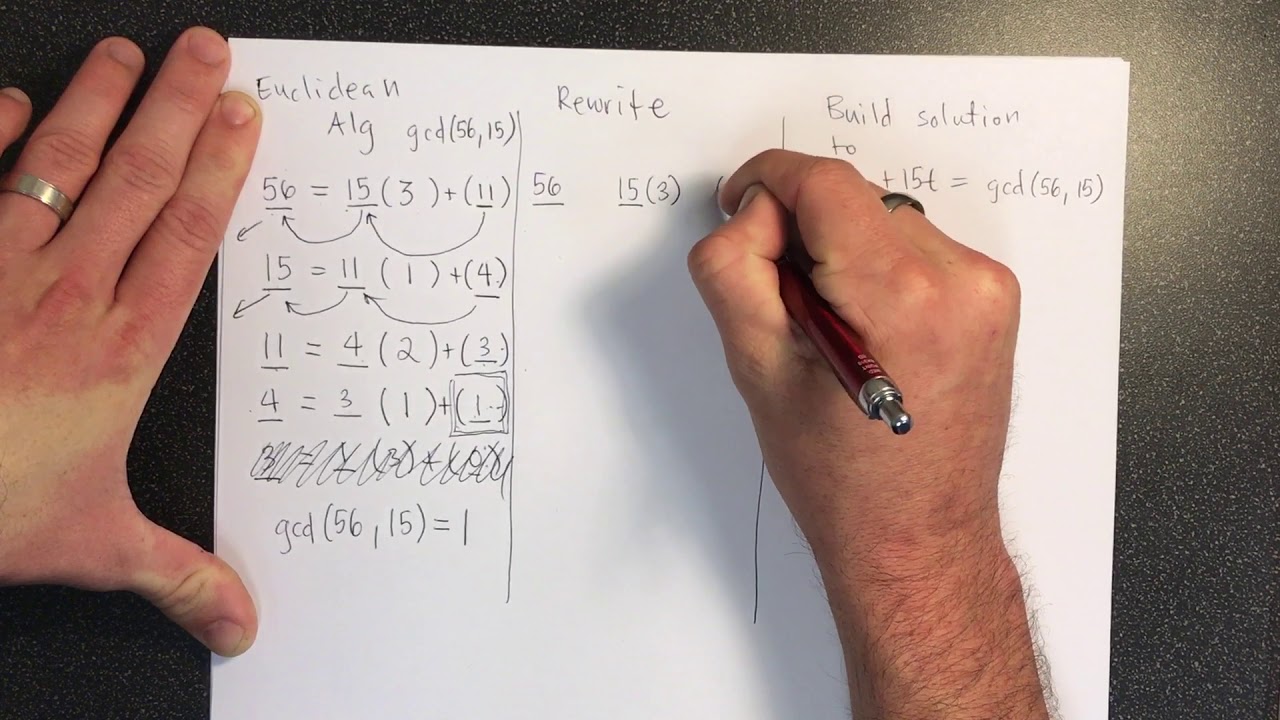 Euclidean
Alg gcd(56,15)
56 = 15(3)+(11)
15 = 11(1)+(4)
11 = 4(2)+(3)
4 = 3(1)+(1)
gcd(56,15)=1
Rewrite
56 15(3) (
Build solution
to
+15t = gcd(56,15)